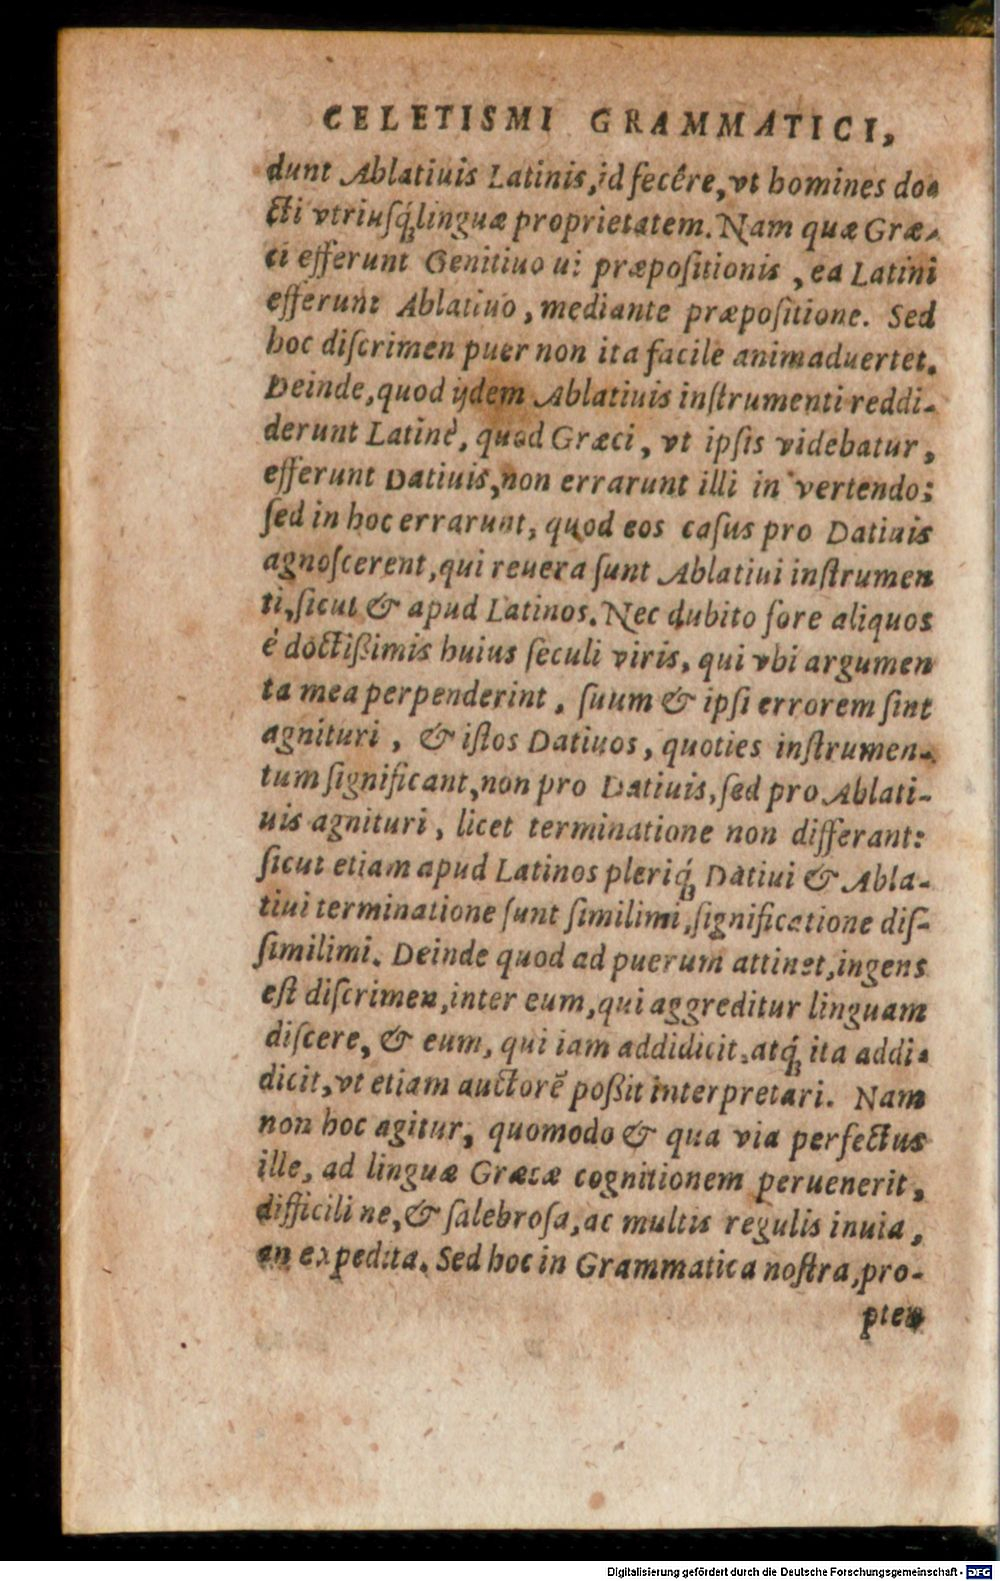 CELETISMI GRAMMATICI,
dunt Ablatiuis Latinis, id fecêre, vt homines do-
cti vtriusq́; linguæ proprietatem. Nam quæ Græ-
ci efferunt Genitiuo ui præpoſitionis, ea Latini
efferunt Ablatiuo, mediante præpoſitione. Sed
hoc diſcrimen puer non ita facile animaduertet.
Deinde, quod ijdem Ablatiuis inſtrumenti reddi-
derunt Latinè, quod Græci, vt ipſis videbatur,
efferunt Datiuis, non errarunt illi in vertendo;
ſed in hoc errarunt, quod eos caſus pro Datiuis
agnoſcerent, qui reuera ſunt Ablatiui inſtrumen
ti, ſicut & apud Latinos. Nec dubito fore aliquos
è doctißimis huius ſeculi viris, qui vbi argumen
ta mea perpenderint, ſuum & ipſi errorem ſint
agnituri, & iſtos Datiuos, quoties inſtrumen-
tum ſignificant, non pro Datiuis, ſed pro Ablati-
uis agnituri, licet terminatione non differant:
ſicut etiam apud Latinos pleriq́; Datiui & Abla-
tiui terminatione ſunt ſimilimi, ſignificatione diſ-
ſimilimi. Deinde quod ad puerum attinet, ingens
eſt diſcrimen, inter eum, qui aggreditur linguam
diſcere, & eum, qui iam addidicit, atq́; ita addi-
dicit, vt etiam auctorē poßit interpretari. Nam
non hoc agitur, quomodo & qua via perfectus
ille, ad linguæ Græcæ cognitionem peruenerit,
difficili ne, & ſalebroſa, ac multis regulis inuia,
an expedita. Sed hoc in Grammatica noſtra, pro-
pter
Digitalisierung gefördert durch die Deutsche Forschungsgemeinschaft - DFG